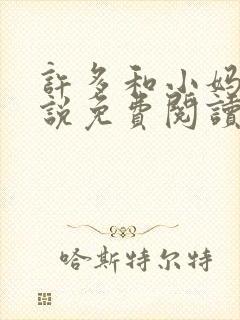 許多和小媽
說免費閱讀
哈斯特尔特